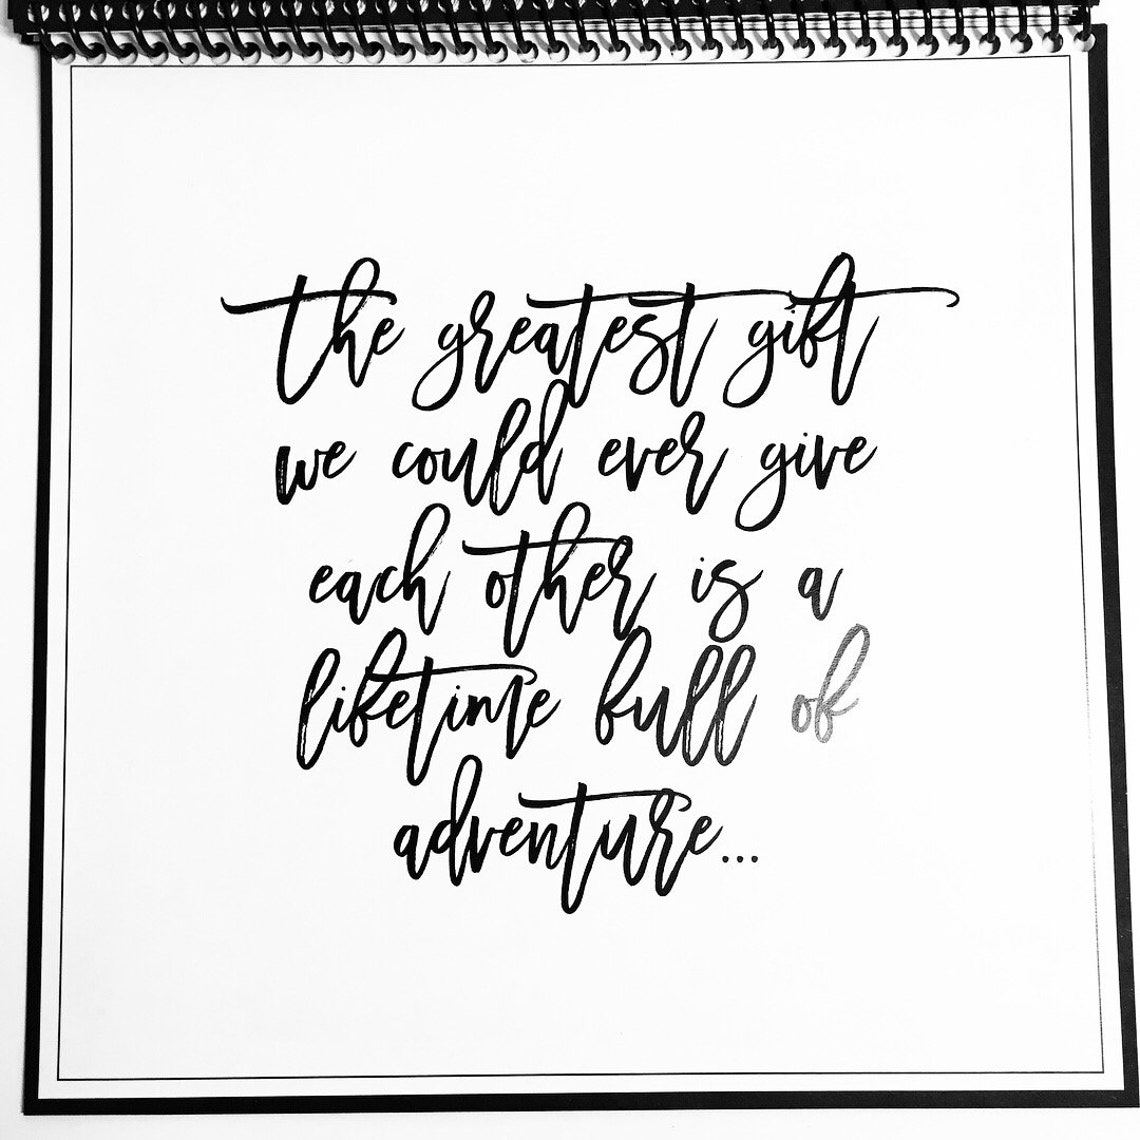 the greatest gift
we could ever give
each other is a
lifetime full of
adventure...